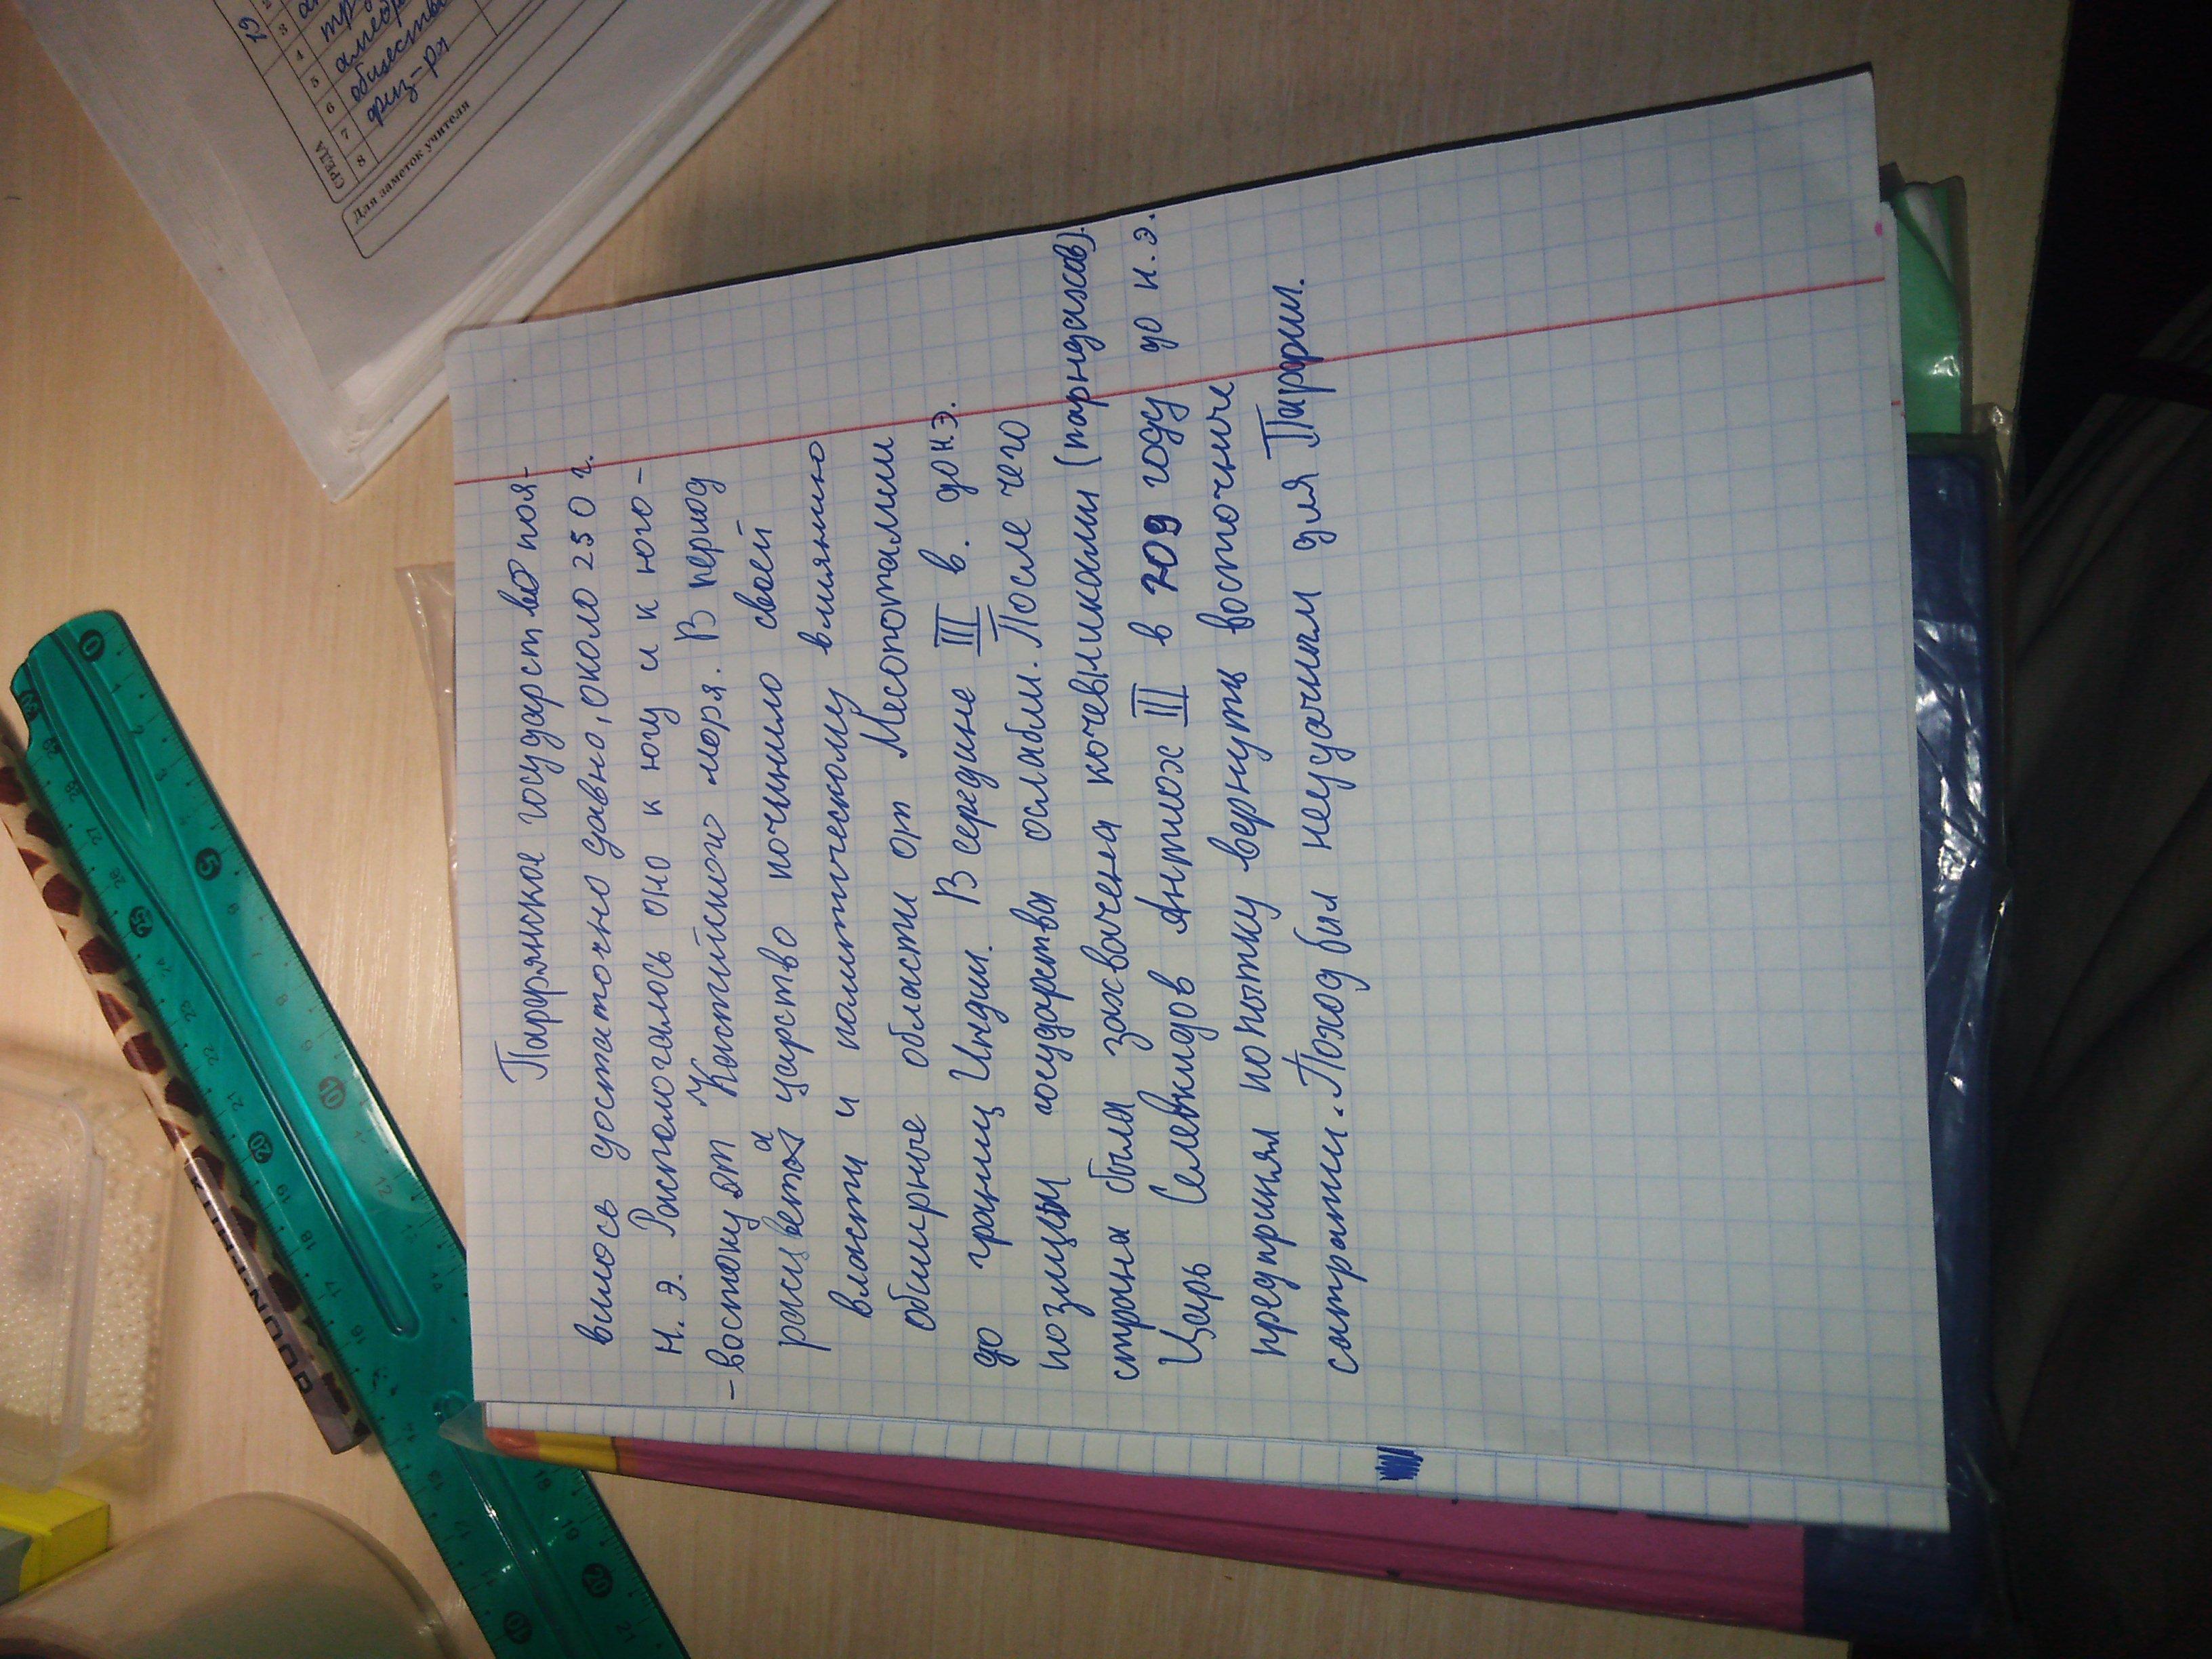 Парфянское государство поя-
вилось достаточно давно, около 250 г.
н. э. Распологалось оно к югу и к юго-
-востоку от Каспийского моря. В период
расцвета царство подчинило своей
власти и политическому влиянию
обширные области от Месопотамии
до границ Индии. В середине III в. до н.э.
позиции государства ослабли. После чего
страна была захвачена кочевниками (парндахов).
Царь Селевкидов Антиох III в 209 году до н.э.
предпринял попытку вернуть восточные
сатрапии. Поход был неудачным для Парфии.
СРЕДА
3
4
5
6 общество
7 физ-ра
8
Для заметок учителя
KOH-I-NOOR